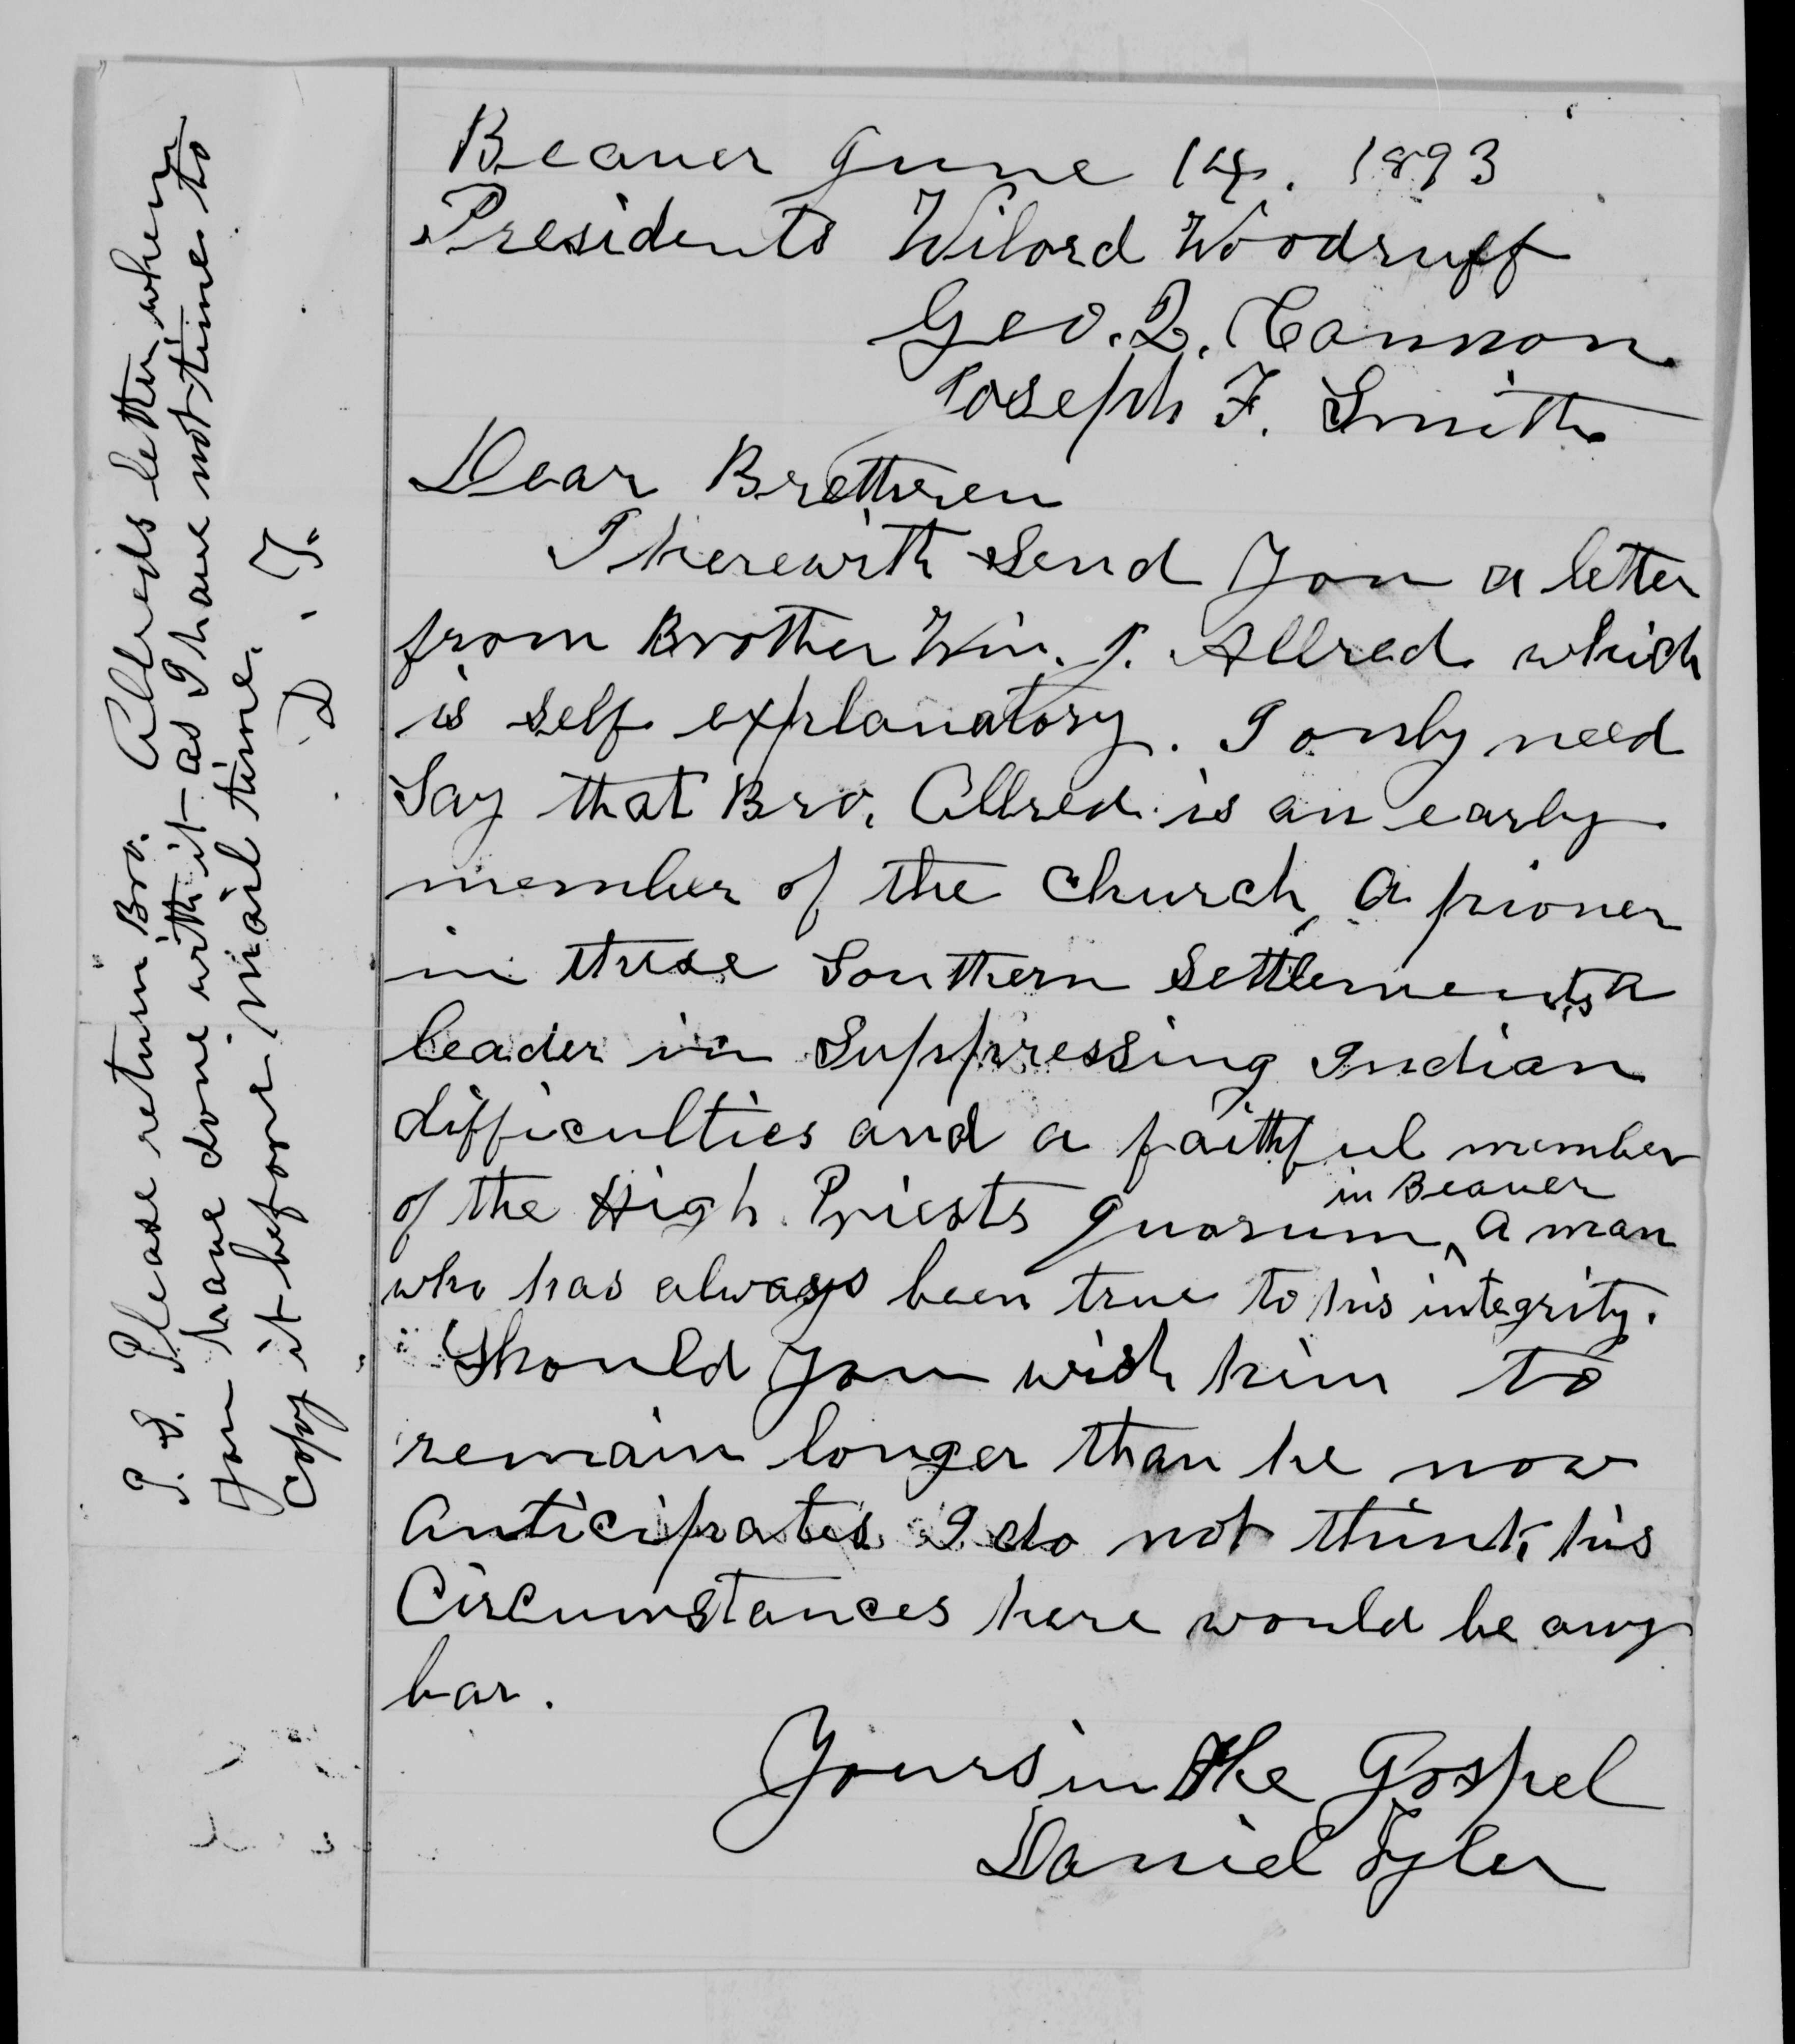 Beaver June 14, 1893
Presidents Wilord Woodruff
Geo. Q. Cannon
Joseph F. Smith
Dear Brethren
I herewith send you a letter
from Brother Wm. J. Allred which
is self explanatory. I only need
Say that Bro. Allred is an early
member of the Church, a pioner
in these Southern Settlements, a
leader in Suppressing Indian
difficulties and a faithful member
in Beaver
of the High Priests quorum ^ a man
who has always been true to his integrity.
Should you wish him to
remain longer than he now
anticipates I do not think his
Circumstances here would be any
bar.
Yours in the Gospel
Daniel Tyler
P. S. Please return Bro. Allreds letter when
you have done with it as I have not time to
Copy it before mail time.
D. T.